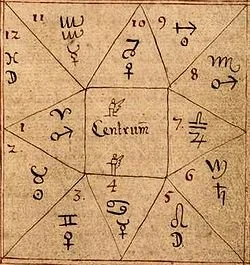 11 10 9
♒ ☿
♀
♐ ☉
12
♓ D
8
♏ ♂
1 ♈ ♂
Centrum
7. ♎ ♃
2 ♉ ☉
6 ♄
3. ♊ ♀
4 ♋ ☿
5 ♌ D